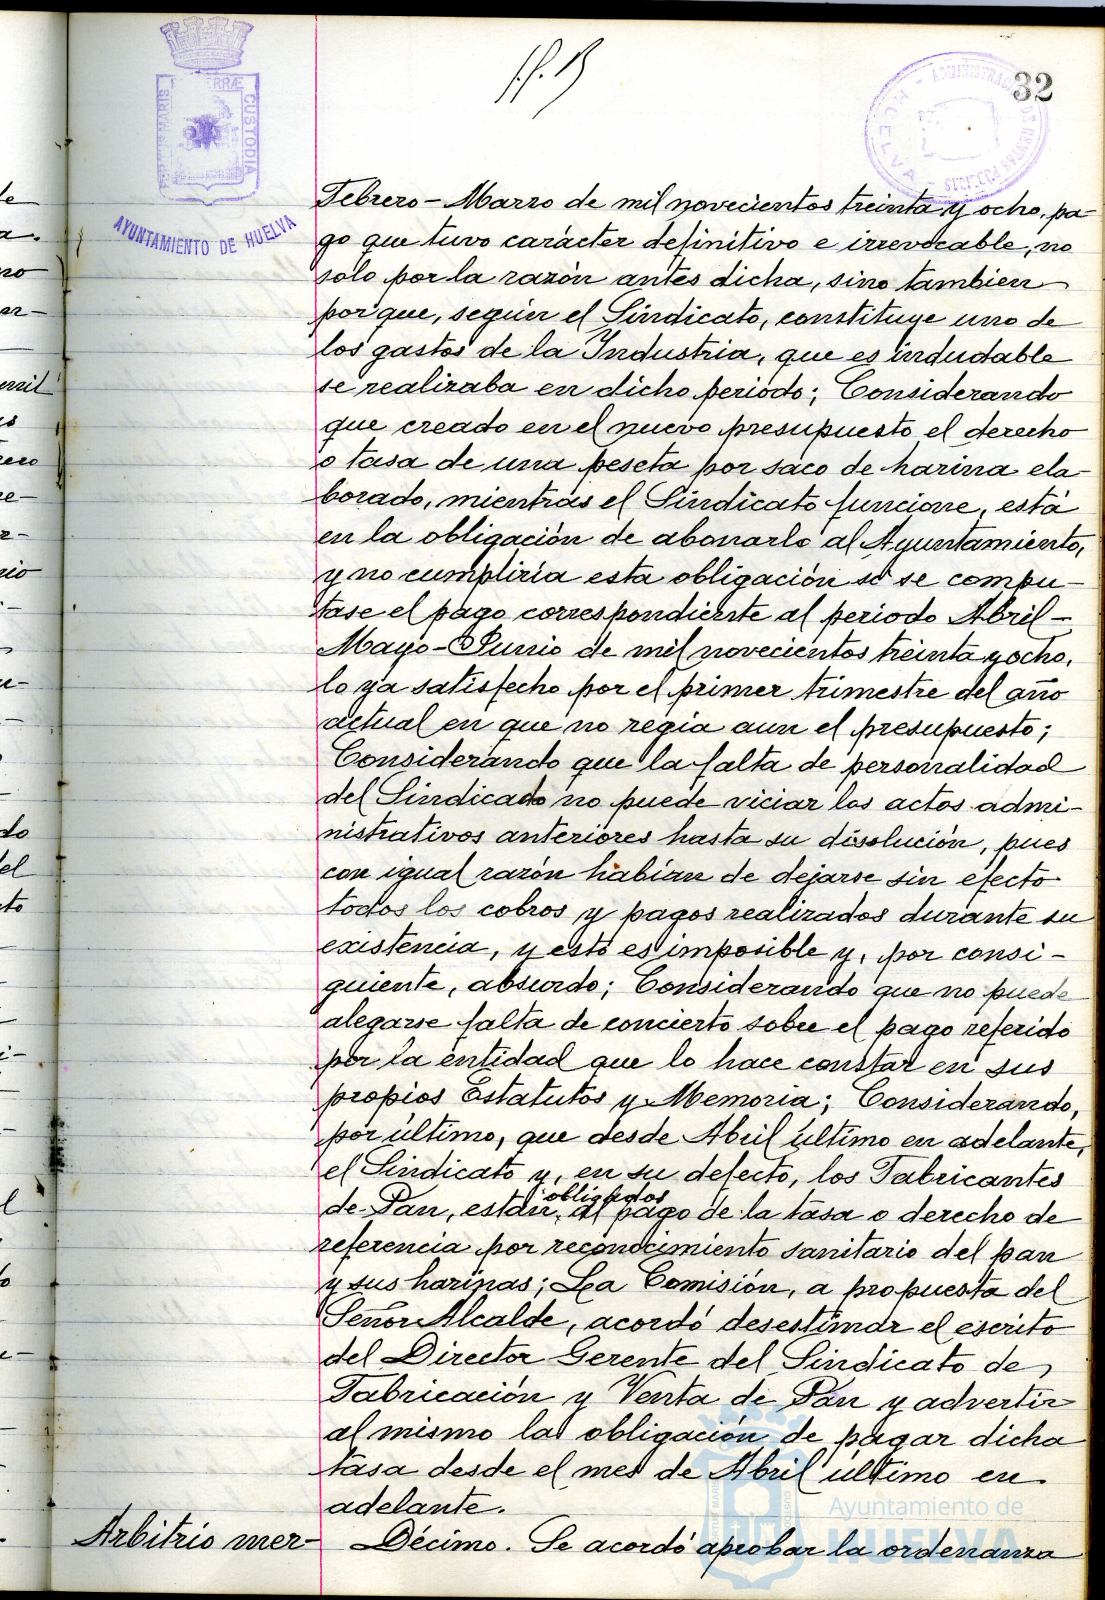 32
PORTUS MARIS ET TERRÆ CUSTODIA
AYUNTAMIENTO DE HUELVA
Febrero-Marzo de mil novecientos treinta y ocho, pa-
go que tuvo carácter definitivo e irrevocable, no
solo por la razón antes dicha, sino tambien
porque, según el Sindicato, constituye uno de
los gastos de la Industria, que es indudable
se realizaba en dicho periodo; Considerando
que creado en el nuevo presupuesto el derecho
o tasa de una peseta por saco de harina ela-
borado, mientras el Sindicato funcione, está
en la obligación de abonarlo al Ayuntamiento,
y no cumpliria esta obligación si se compu-
tase el pago correspondiente al periodo Abril-
Mayo-Junio de mil novecientos treinta y ocho,
lo ya satisfecho por el primer trimestre del año
actual en que no regia aun el presupuesto;
Considerando que la falta de personalidad
del Sindicado no puede viciar los actos admi-
nistrativos anteriores hasta su disolución, pues
con igual razón habían de dejarse sin efecto
todos los cobros y pagos realizados durante su
existencia, y esto es imposible y, por consi-
guiente, absurdo; Considerando que no puede
alegarse falta de concierto sobre el pago referido
por la entidad que lo hace constar en sus
propios Estatutos y Memoria; Considerando,
por último, que desde Abril último en adelante,
el Sindicato y, en su defecto, los Fabricantes
obligados
de Pan, están, al pago de la tasa o derecho de
referencia por reconocimiento sanitario del pan
y sus harinas; La Comisión, a propuesta del
Señor Alcalde, acordó desestimar el escrito
del Director Gerente del Sindicato de
Fabricación y Venta de Pan y advertir
al mismo la obligación de pagar dicha
tasa desde el mes de Abril último en
adelante.
Arbitrio mer- Décimo. Se acordó aprobar la ordenanza
Ayuntamiento de
HUELVA